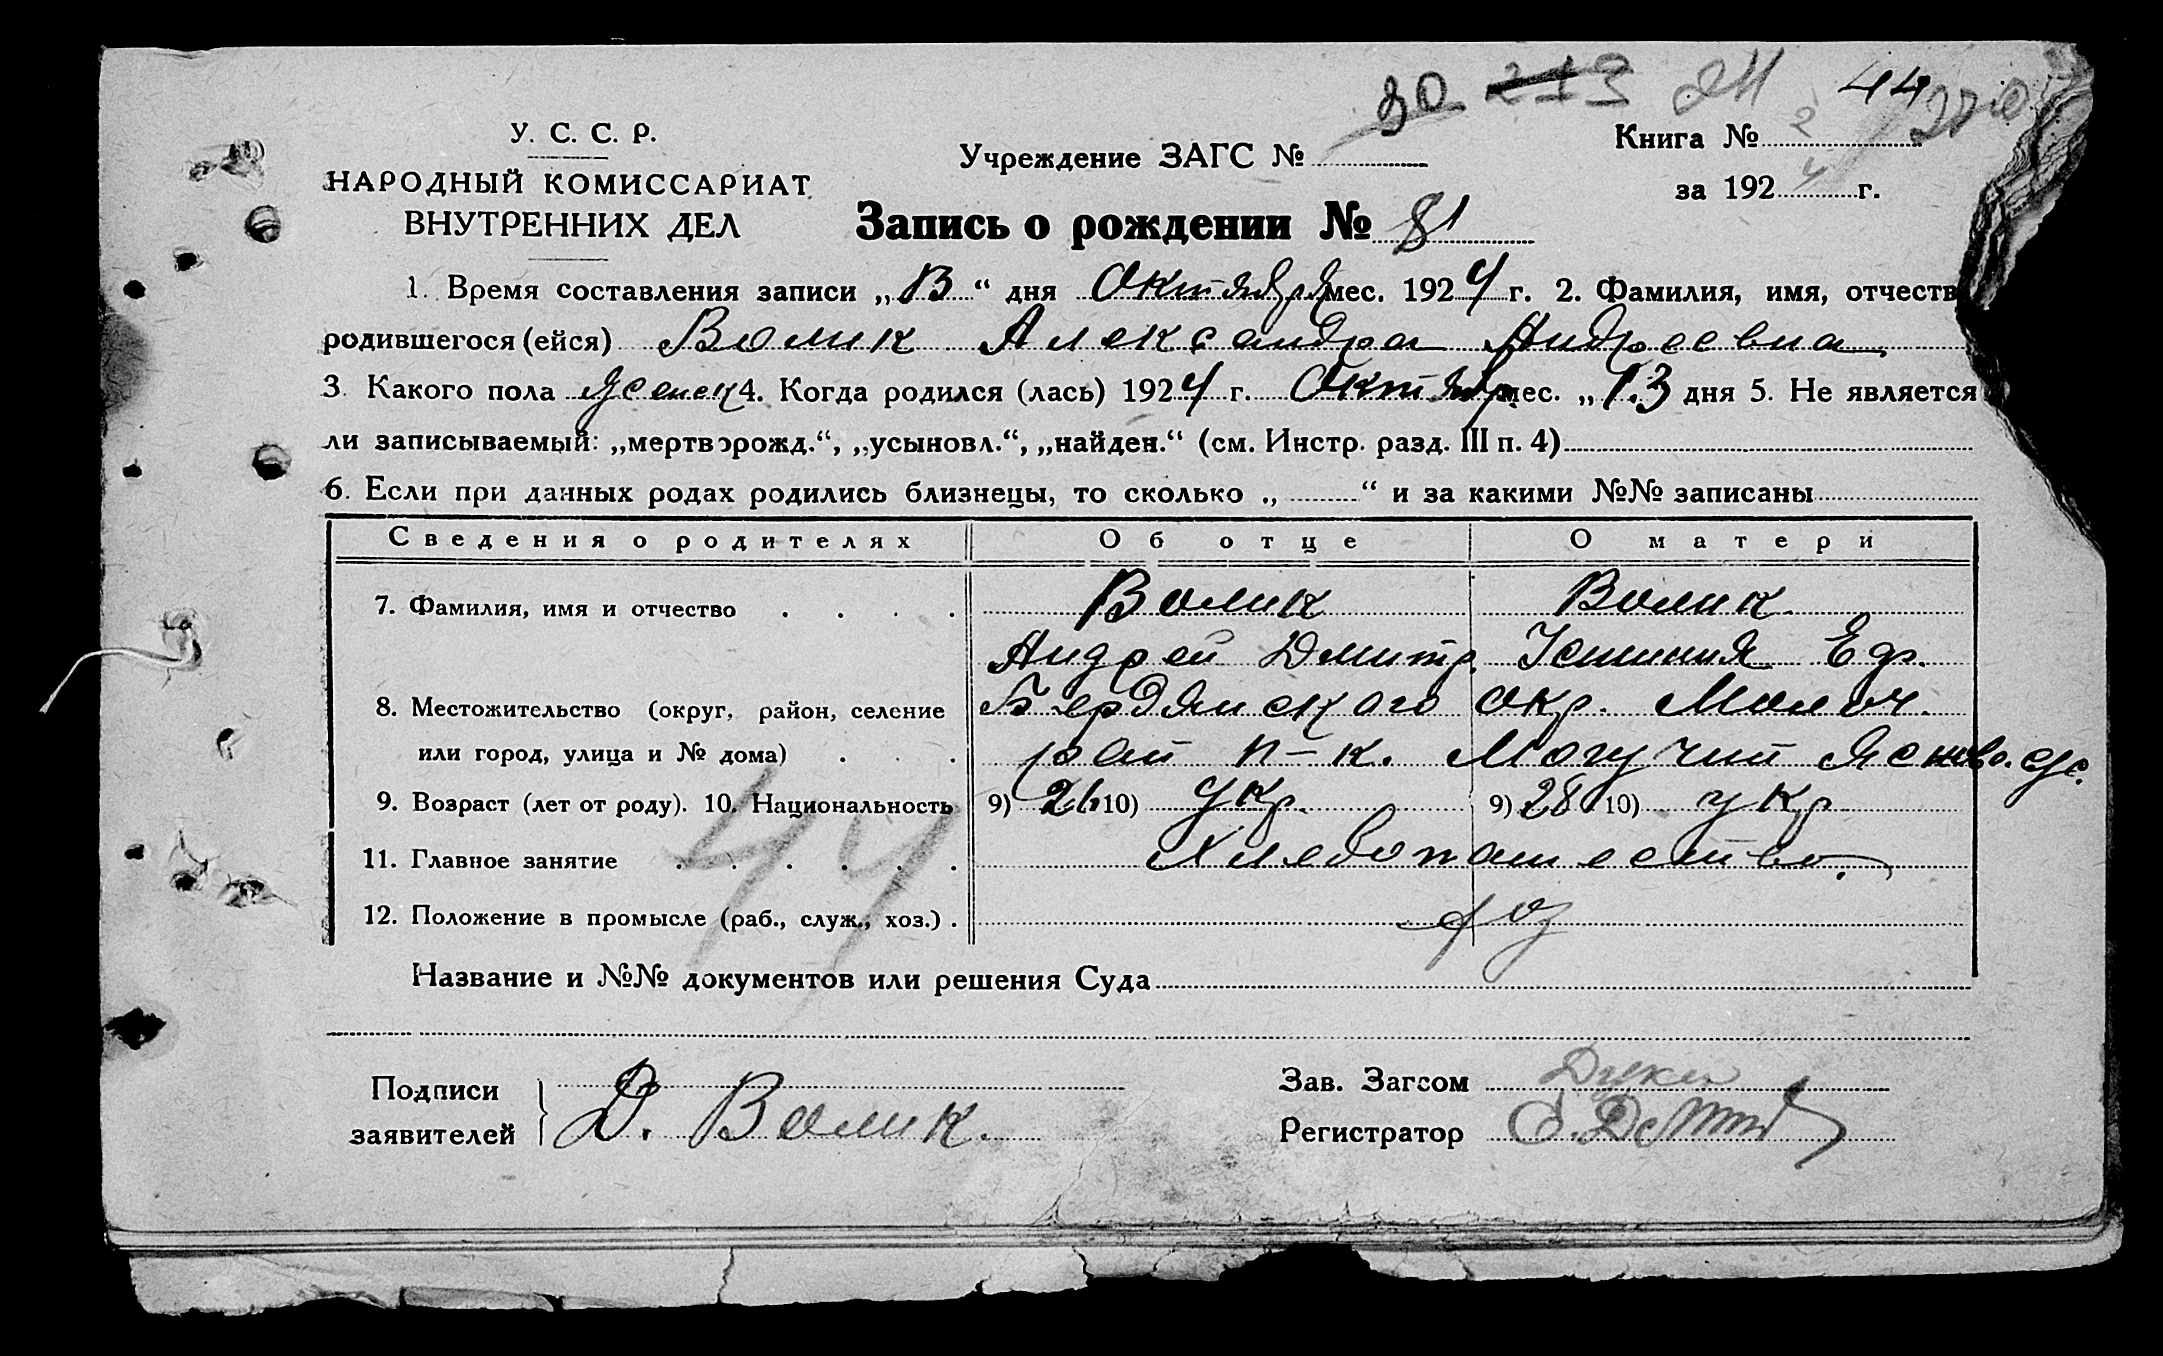 30 213 211 44 220
У. С. С. Р.
НАРОДНЫЙ КОМИССАРИАТ
ВНУТРЕННИХ ДЕЛ
Учреждение ЗАГС №
Книга № 2
за 192 4 г.
Запись о рождении № 81
1. Время составления записи „13“ дня Октября мес. 1924 г. 2. Фамилия, имя, отчеств
родившегося (ейся) Волик Александра Андреевна
3. Какого пола женск 4. Когда родился (лась) 1924 г. Октябр мес. „13 дня 5. Не является
ли записываемый: „мертворожд.“, „усыновл.“, „найден.“ (см. Инстр. разд. III п. 4)
6. Если при данных родах родились близнецы, то сколько „ “ и за какими №№ записаны
Сведения о родителях Об отце О матери
7. Фамилия, имя и отчество . . . . Волик Волик
Андрей Дмитр. Устиния Еф.
8. Местожительство (округ, район, селение Бердянского окр. Молоч.
или город, улица и № дома) . . . рай п-к. Могучий
9. Возраст (лет от роду). 10. Национальность 9) 26 10) укр. 9) 28 10) укр
11. Главное занятие . . . . . . Хлебопашество.
12. Положение в промысле (раб., служ., хоз.) . хоз
44
Название и №№ документов или решения Суда
Подписи
заявителей
Д. Волик.
Зав. Загсом
Регистратор